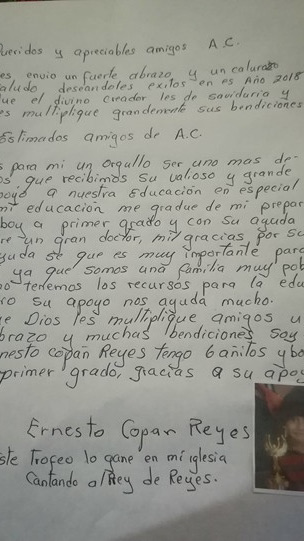 Queridos y apreciables amigos A.C.
les envio un fuerte abrazo y un caluroso
saludo deseandoles exitos en es Año 2018
que el divino creador les de saviduria y
les multiplique grandemente sus bendiciones
Estimados amigos de A.C.
Es para mi un orgullo ser uno mas de
los que recibimos su valioso y grande
apoyo a nuestra Educación en especial
mi educación me gradue de mi prepar
boy a primer grado y con su ayuda
re un gran doctor, mil gracias por su
ayuda se que es muy importante para
ya que somos una familia muy pob
no tenemos los recursos para la edu
pero su apoyo nos ayuda mucho.
que Dios les multiplique amigos u
abrazo y muchas bendiciones soy
Ernesto copán Reyes tengo 6 añitos y bo
primer grado, gracias a su apoy
Ernesto Copan Reyes
este Trofeo lo gane en mi iglesia
Cantando al Rey de Reyes.